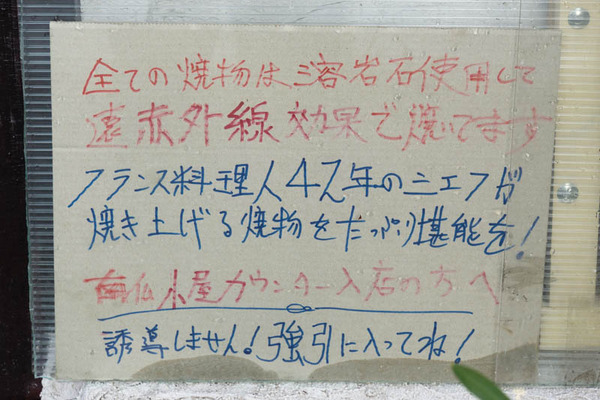 全ての焼物は溶岩石使用して
遠赤外線効果で焼いてます
フランス料理人47年のシェフが
焼き上げる焼物をたっぷり堪能を!
南仏小屋カウンター入店の方へ
誘導しません!強引に入ってね!